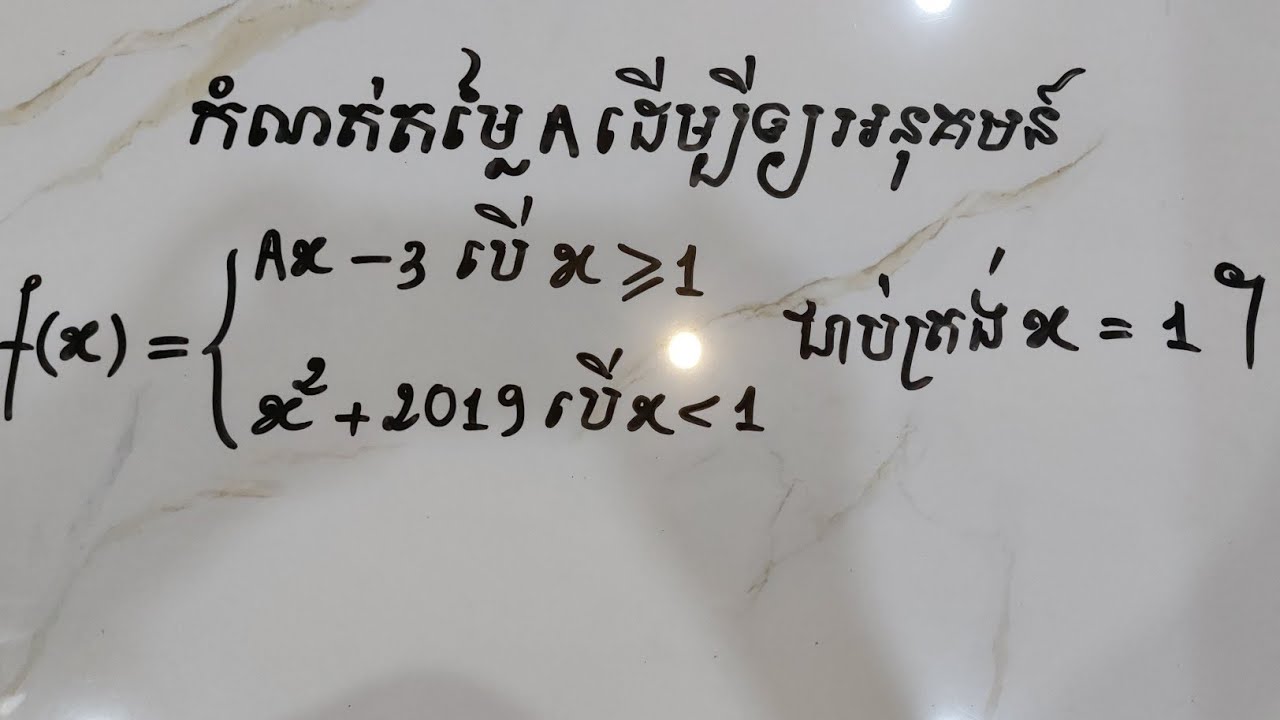 កំណត់តម្លៃ A ដើម្បីឲ្យអនុគមន៍
f(x) = { Ax - 3 បើ x ⩾ 1
x² + 2019 បើ x < 1
ជាប់ត្រង់ x = 1 ។